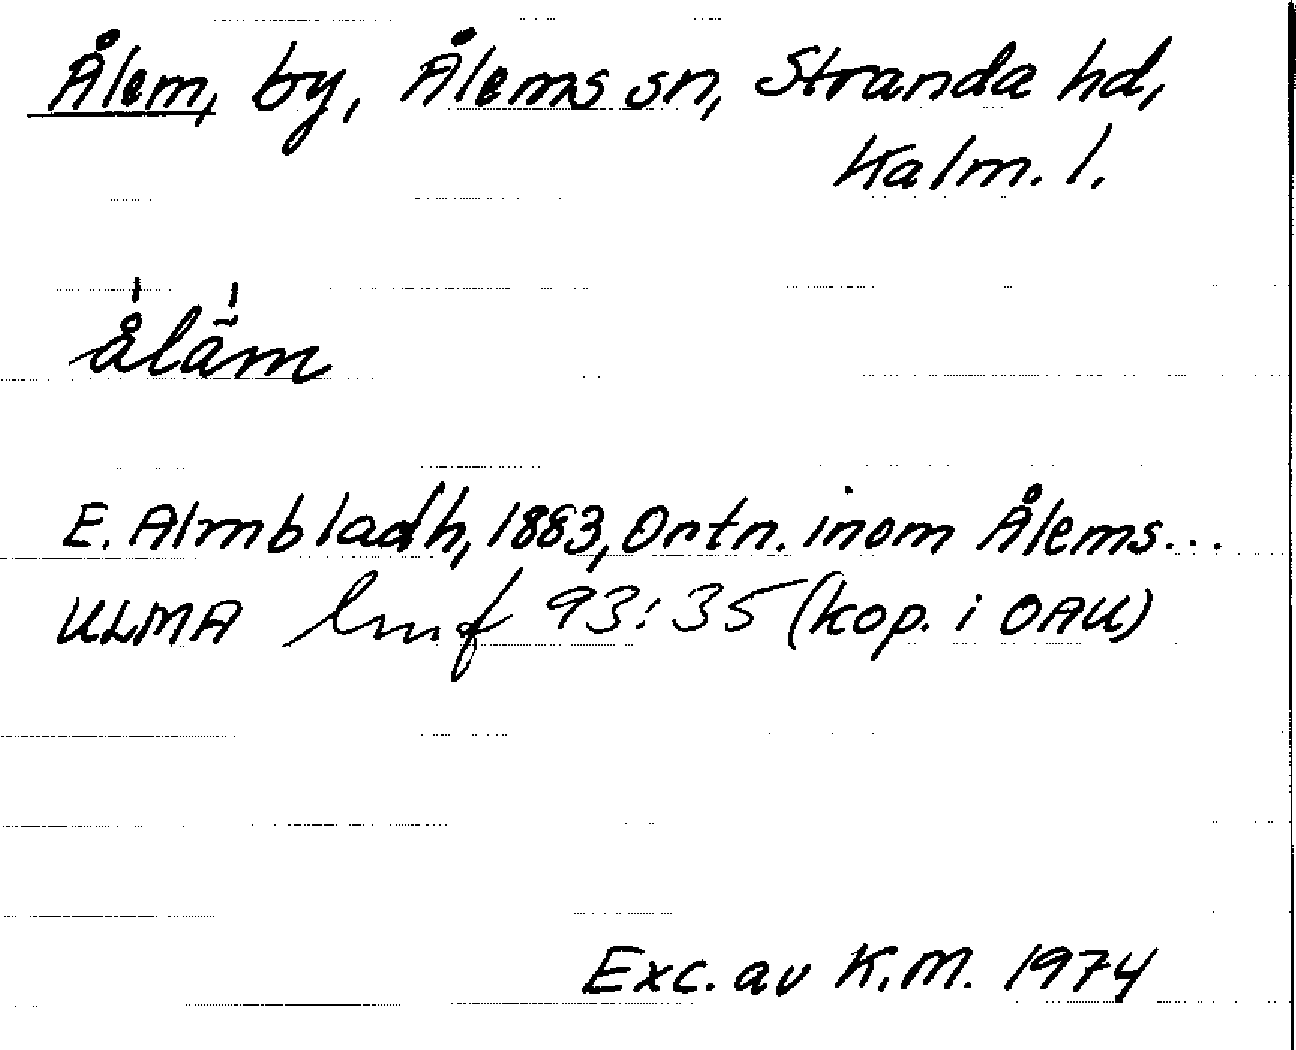 Ålem, by, Ålems sn, Stranda hd,
Kalm. l.
åläm
E. Almbladh, 1883, Ortn. inom Ålems...
ULMA hmf 93:35 (kop. i OAU)
Exc. av K.M. 1974